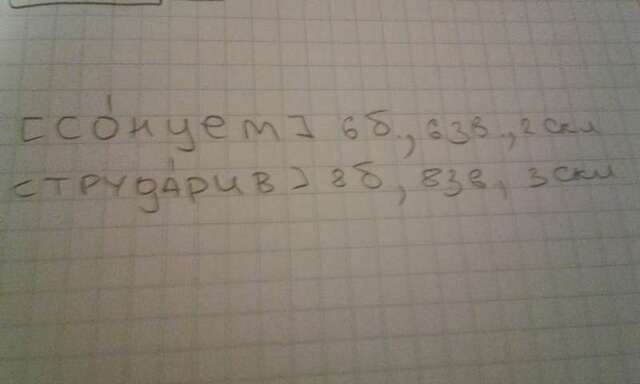 [ССО́нцем] 6б., 6зв., 2скл
[ТРУДА́РИВ] 8б, 8зв, 3скл